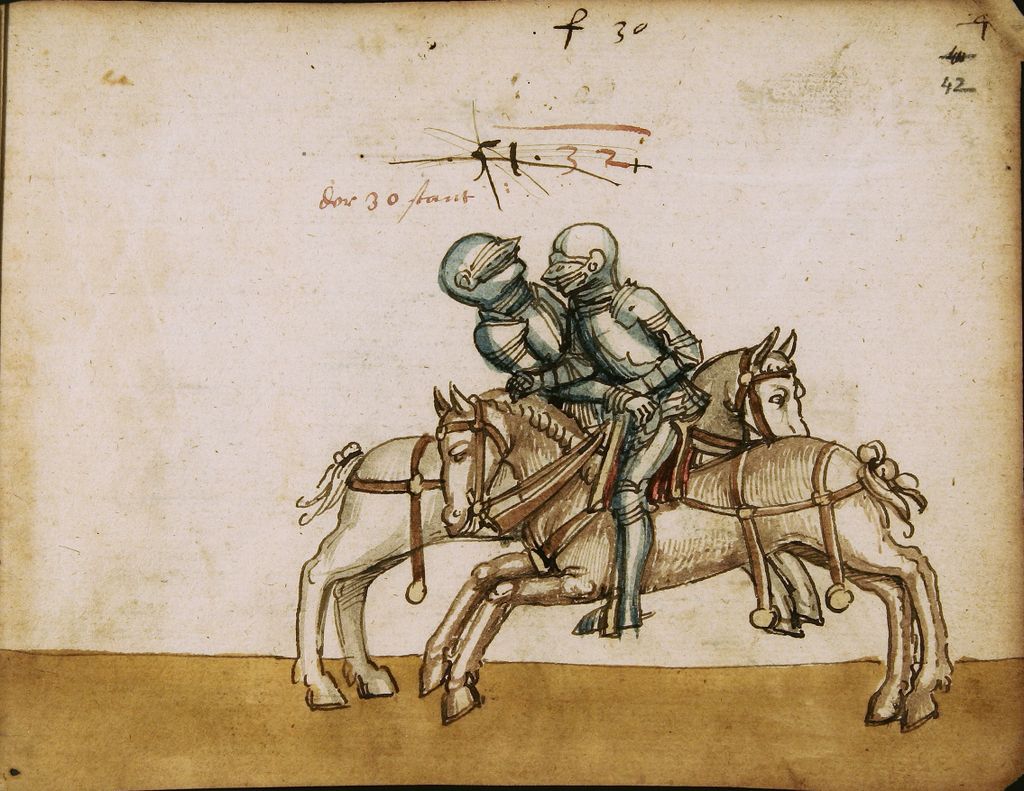 f 30
9
42
51. 32
der 30 stant